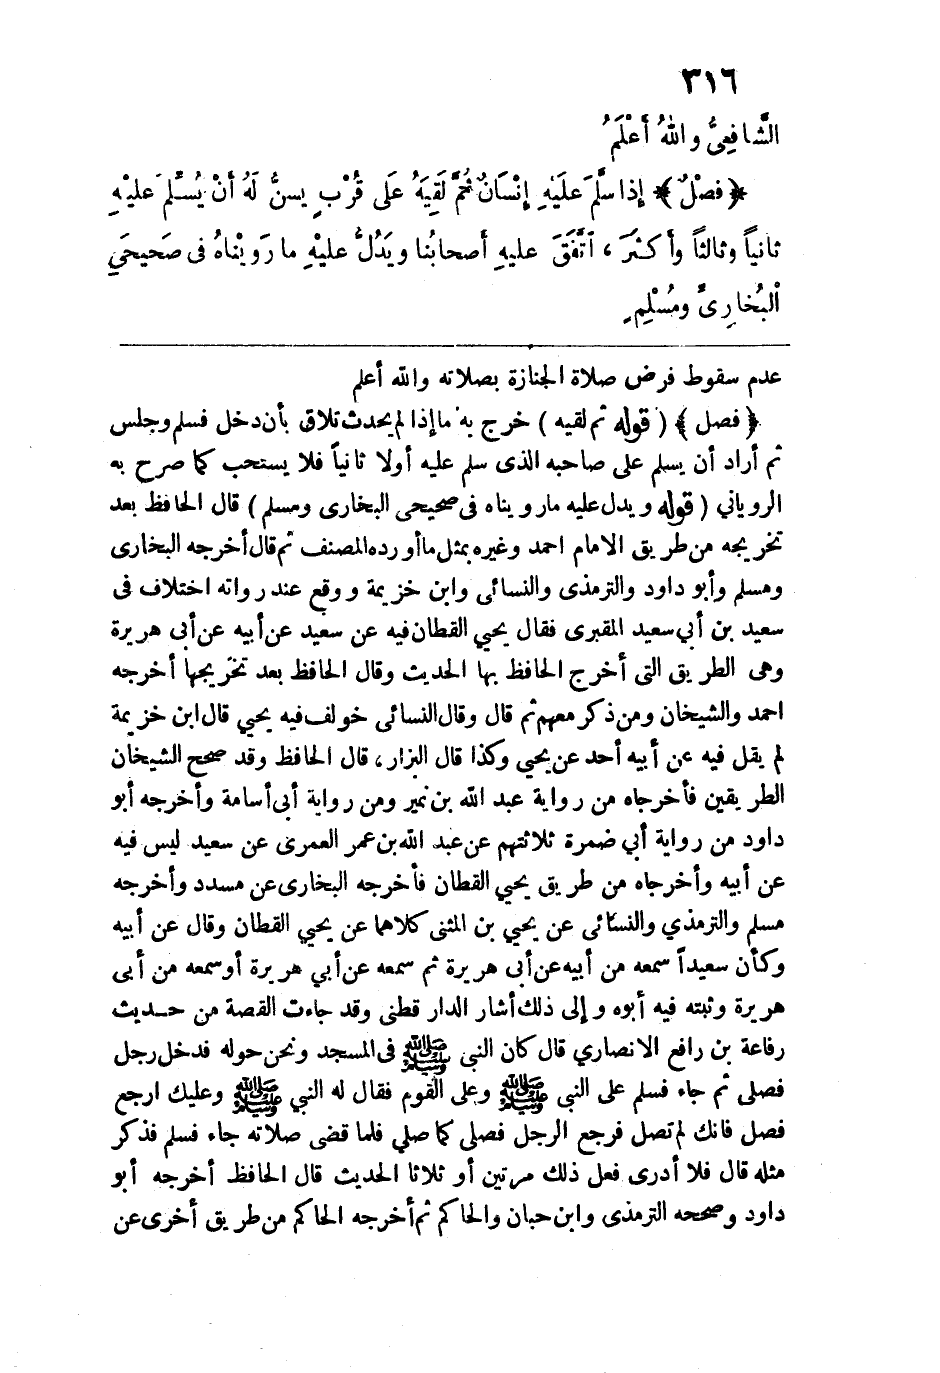 ٣١٦
الشَّافِعِىُّ واللهُ أَعْلَمُ
﴿فصْلٌ﴾ إِذا سَلَّمَ عَلَيْهِ إِنْسَانٌ ثُمَّ لَقِيَهُ عَلَى قُرْبٍ يسنُّ لَهُ أَنْ يُسَلِّمَ عَليْهِ
ثانياً وثالثاً وأَكثَرَ ، اتَّفَقَ عليهِ أَصحابُنا ويَدُلُّ عليْهِ ما رويْناهُ فى صَحيحَيِ
الْبُخَارِىِّ ومُسْلِمٍ
عدم سقوط فرض صلاة الجنازة بصلاته والله أعلم
﴿ فصل ﴾ ( قوله ثم لقيه ) خرج به ما إذا لم يحدث تلاق بأن دخل فسلم وجلس
ثم أراد أن يسلم على صاحبه الذى سلم عليه أولا ثانياً فلا يستحب كما صرح به
الروياني ( قوله ويدل عليه مارويناه فى صحيحى البخارى ومسلم ) قال الحافظ بعد
تخريجه من طريق الامام احمد وغيره بمثل ماأورده المصنف ثم قال أخرجه البخارى
ومسلم وأبو داود والترمذى والنسائى وابن خزيمة ووقع عند رواته اختلاف فى
سعيد بن أبي سعيد المقبرى فقال يحيي القطان فيه عن سعيد عن أبيه عن أبى هريرة
وهى الطريق التى أخرج الحافظ بها الحديث وقال الحافظ بعد تخريجها أخرجه
احمد والشيخان ومن ذكر معهم ثم قال وقال النسائى خولف فيه يحيي قال ابن خزيمة
لم يقل فيه عن أبيه أحد عن يحيى وكذا قال البزار ، قال الحافظ وقد صحح الشيخان
الطريقين فأخرجاه من رواية عبد الله بن نمير ومن رواية أبى أسامة وأخرجه أبو
داود من رواية أبي ضمرة ثلاثتهم عن عبد الله بن عمر العمرى عن سعيد ليس فيه
عن أبيه وأخرجاه من طريق يحيي القطان فأخرجه البخارى عن مسدد وأخرجه
مسلم والترمذي والنسائى عن يحيي بن المثنى كلاهما عن يحيي القطان وقال عن أبيه
وكأن سعيداً سمعه من أبيه عن أبى هريرة ثم سمعه عن أبي هريرة أو سمعه من أبى
هريرة وثبته فيه أبوه وإلى ذلك أشار الدار قطنى وقد جاءت القصة من حديث
رفاعة بن رافع الانصاري قال كان النبى ﷺ فى المسجد ونحن حوله فدخل رجل
فصلى ثم جاء فسلم على النبى ﷺ وعلى القوم فقال له النبي ﷺ وعليك ارجع
فصل فانك لم تصل فرجع الرجل فصلى كما صلي فلما قضى صلاته جاء فسلم فذكر
مثله قال فلا أدرى فعل ذلك مرتين أو ثلاثا الحديث قال الحافظ أخرجه أبو
داود وصححه الترمذى وابن حبان والحاكم ثم أخرجه الحاكم من طريق أخرى عن